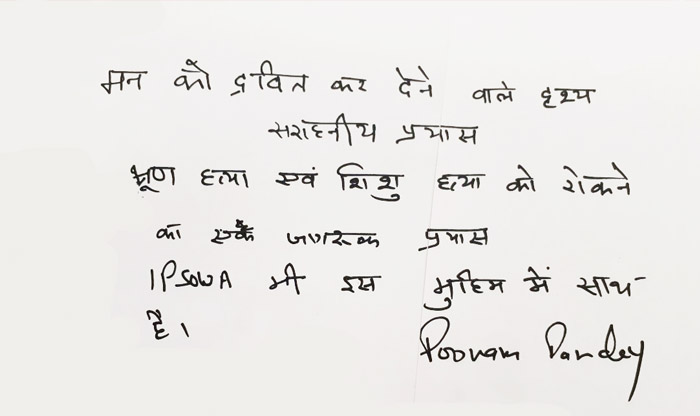 मन को द्रवित कर देने वाले दृश्य
सराहनीय प्रयास
भ्रूण हत्या एवं शिशु हत्या को रोकने
का एक जागरूक प्रयास
IPSOWA भी इस मुहिम में साथ
है।
Poonam Pandey